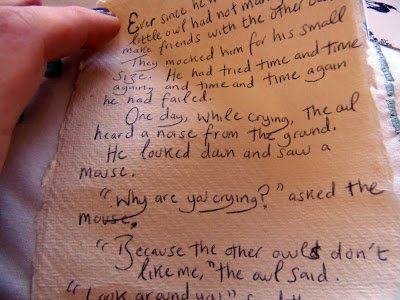 Ever since he
little owl had not
make friends with the other
They mocked him for his small
size. He had tried time and time
again and time and time again
he had failed.
One day, while crying, The owl
heard a noise from the ground.
He looked down and saw a
mouse.
"Why are you crying?" asked the
mouse.
"Because the other owls don't
like me," the owl said.
"Look around you!"